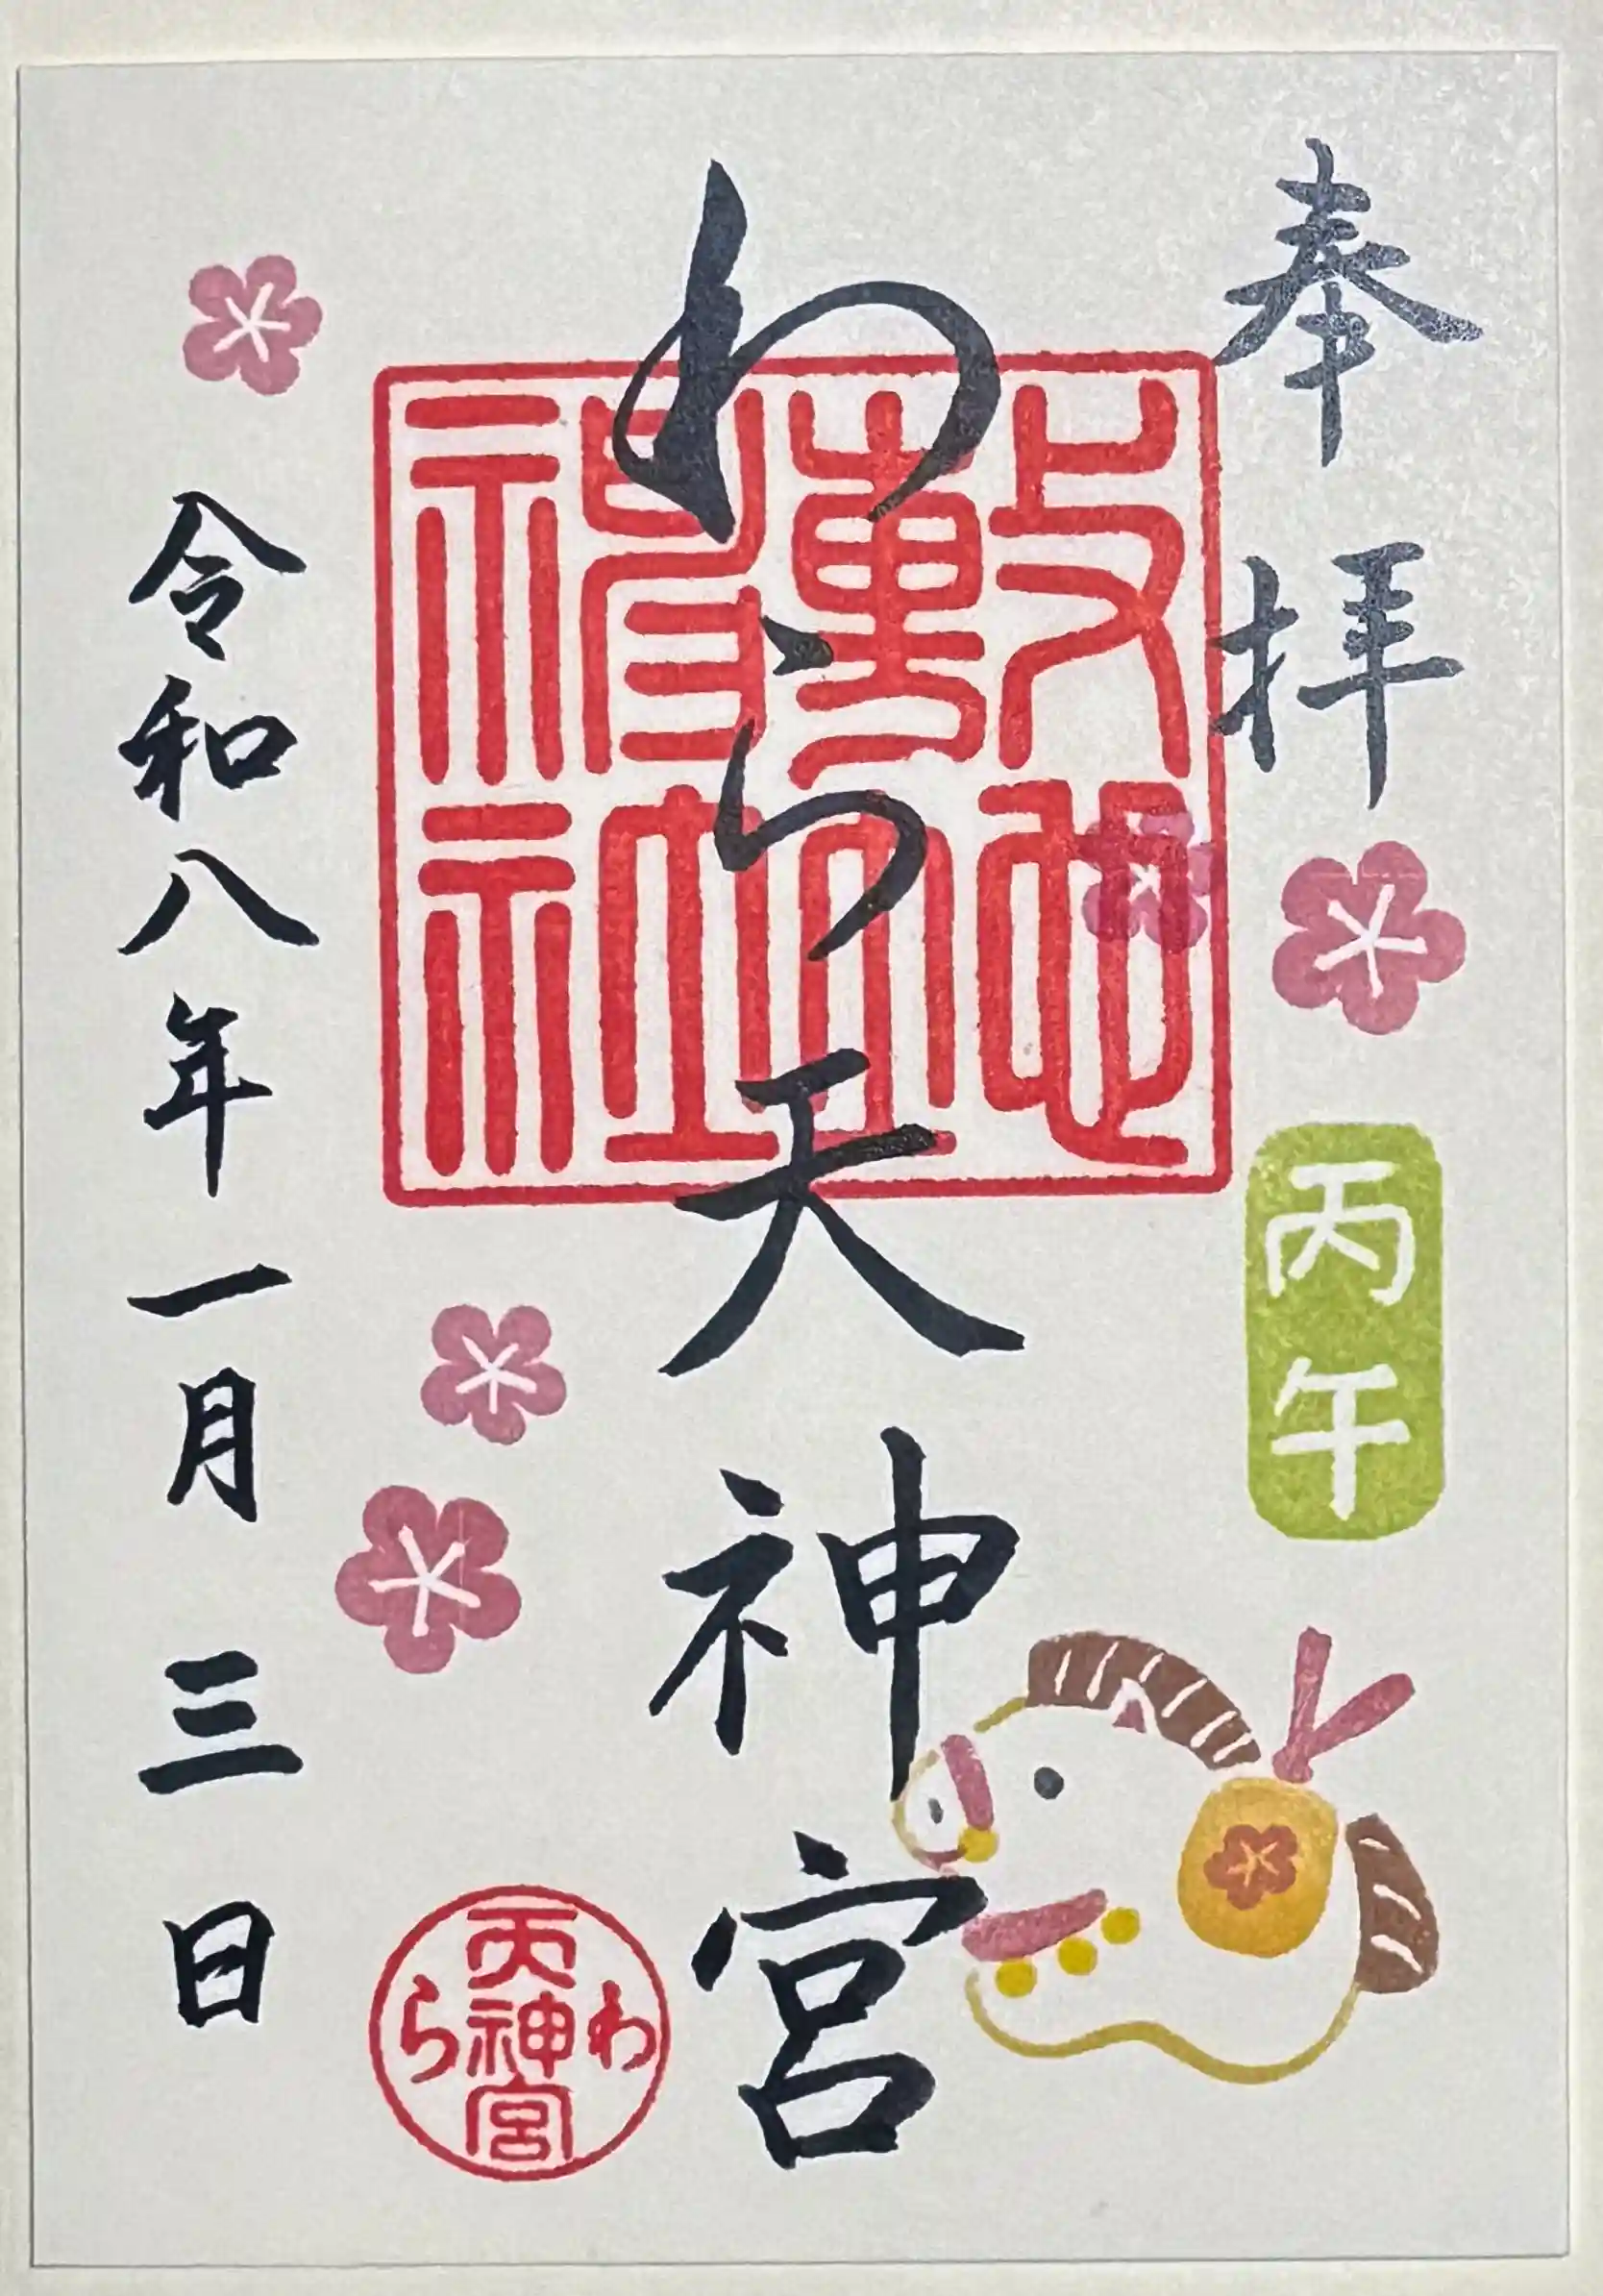 奉拝
丙午
わら天神宮
敷地神社
令和八年一月三日
わら天神宮